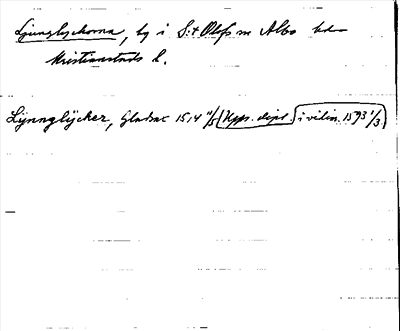 Ljunglyckorna, by i S:t Olofs sn Albo hd
Kristianstads l.
Lÿnnglÿcker, Gladsax 1514 11/5 (Upps. dipl.) i vidim. 1593 1/3